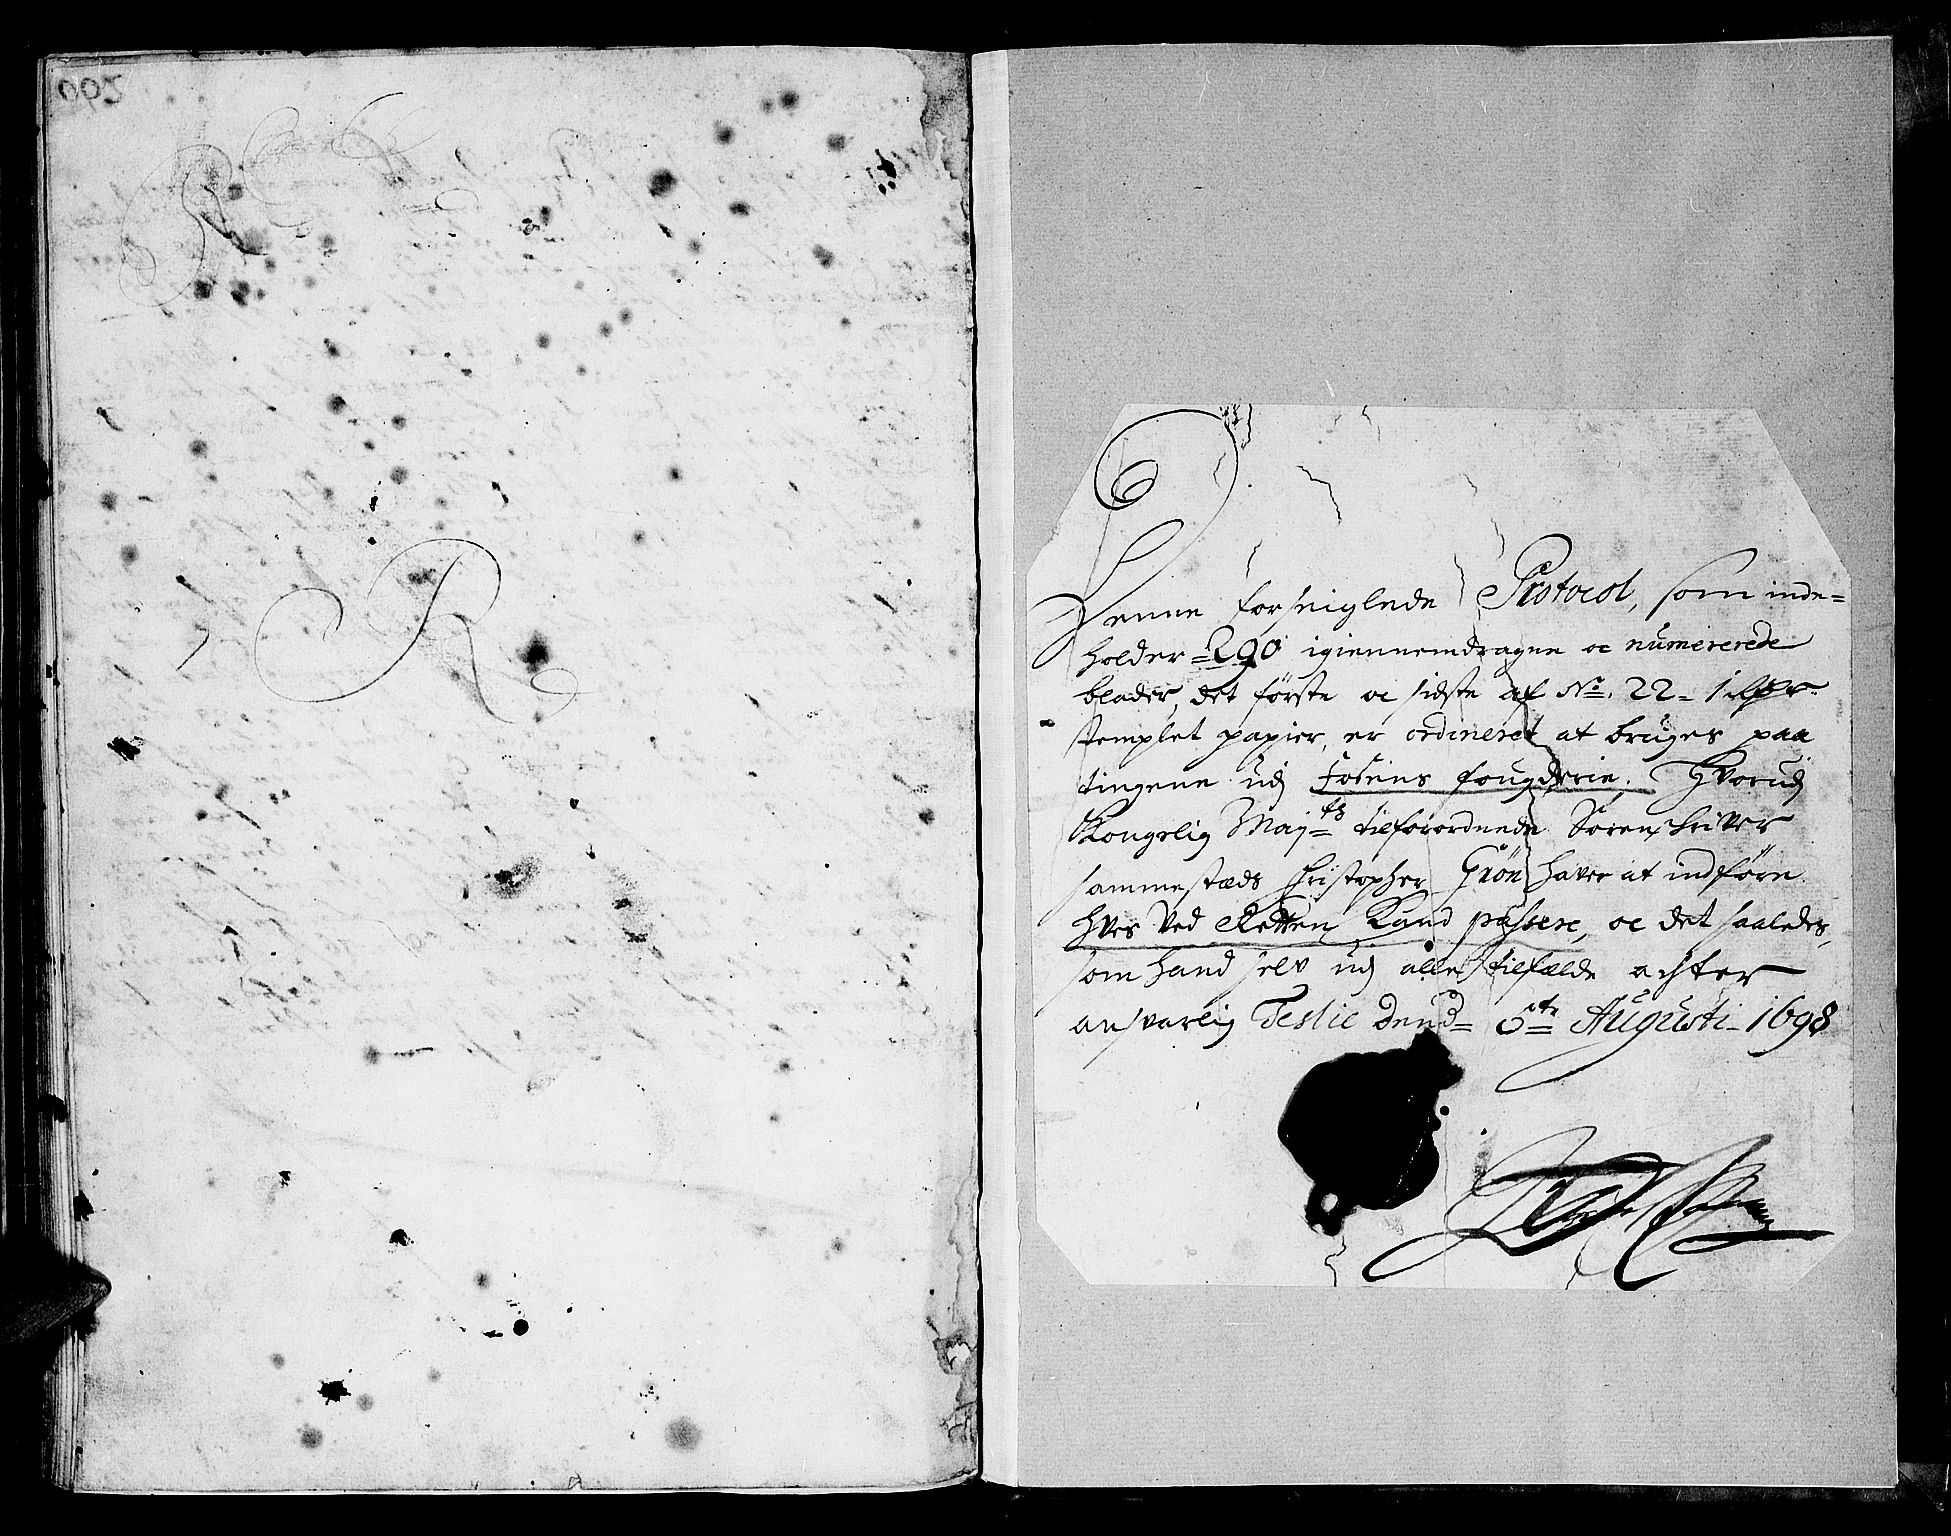 R
R
Denne forseiglede Protocol, som inde=
holder =290 igiennemdragne oc numererede
blader, det første oc sidste af No. 22-
stemplet papier, er ordineret at bruges paa
tingene udj Fosens fougderie. Hvorudj
Kongelig Mayts tilforordnede Sorenschriver
sammestæds Christopher Grön haver at indføre
hves ved Retten Kand passere, oc det saaledes,
som hand selv udj alle tilfælde achter
ansvarlig Teslie dend 6te Augusti 1698